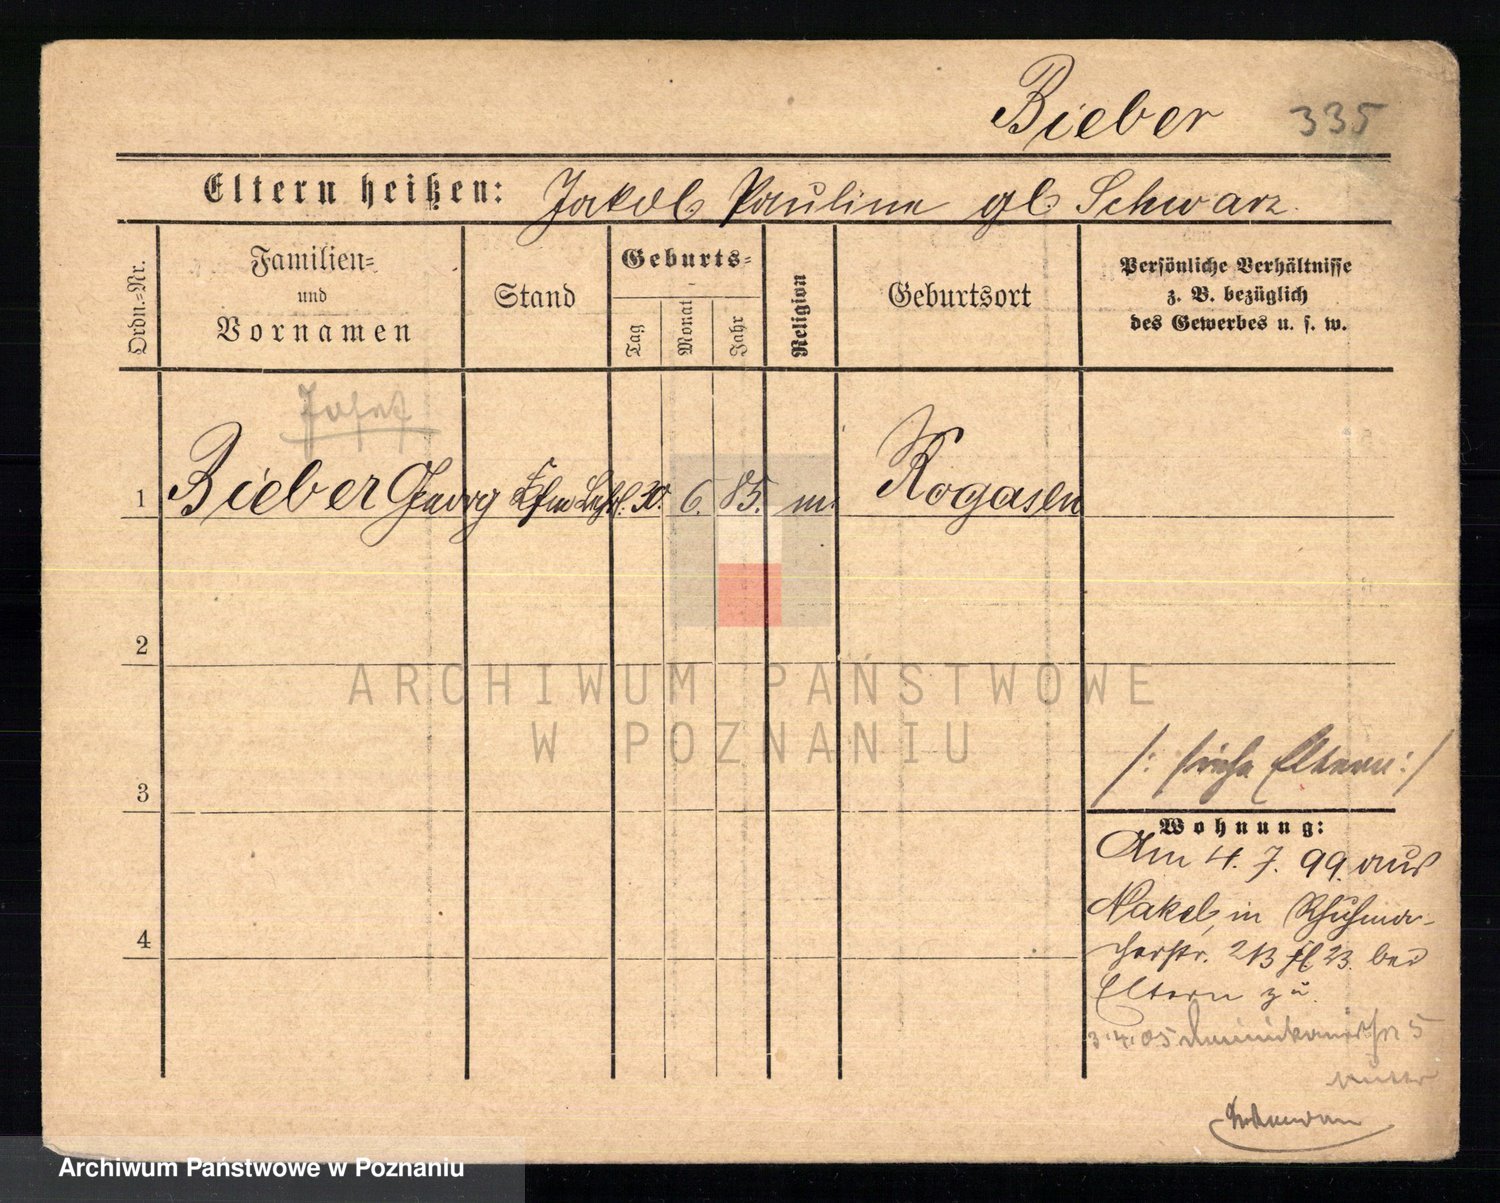 Bieber 335
Eltern heißen: Jakob Pauline gb. Schwarz.
Ordn.=Nr.
Familien=
und
Vornamen
Stand
Geburts=
Tag
Monat
Jahr
Religion
Geburtsort
Persönliche Verhältnisse
z. B. bezüglich
des Gewerbes u. s. w.
1 Bieber Georg Kfm Lehrl. 30. 6. 85. m. Rogasen
2
3
4
/: siehe Eltern :/
Wohnung:
Am 4. 7. 99. aus
Nakel, in Schuhma-
cherstr. 213 23. bei
Eltern zu.
3.4.05 5
ARCHIWUM PAŃSTWOWE
W POZNANIU
Archiwum Państwowe w Poznaniu